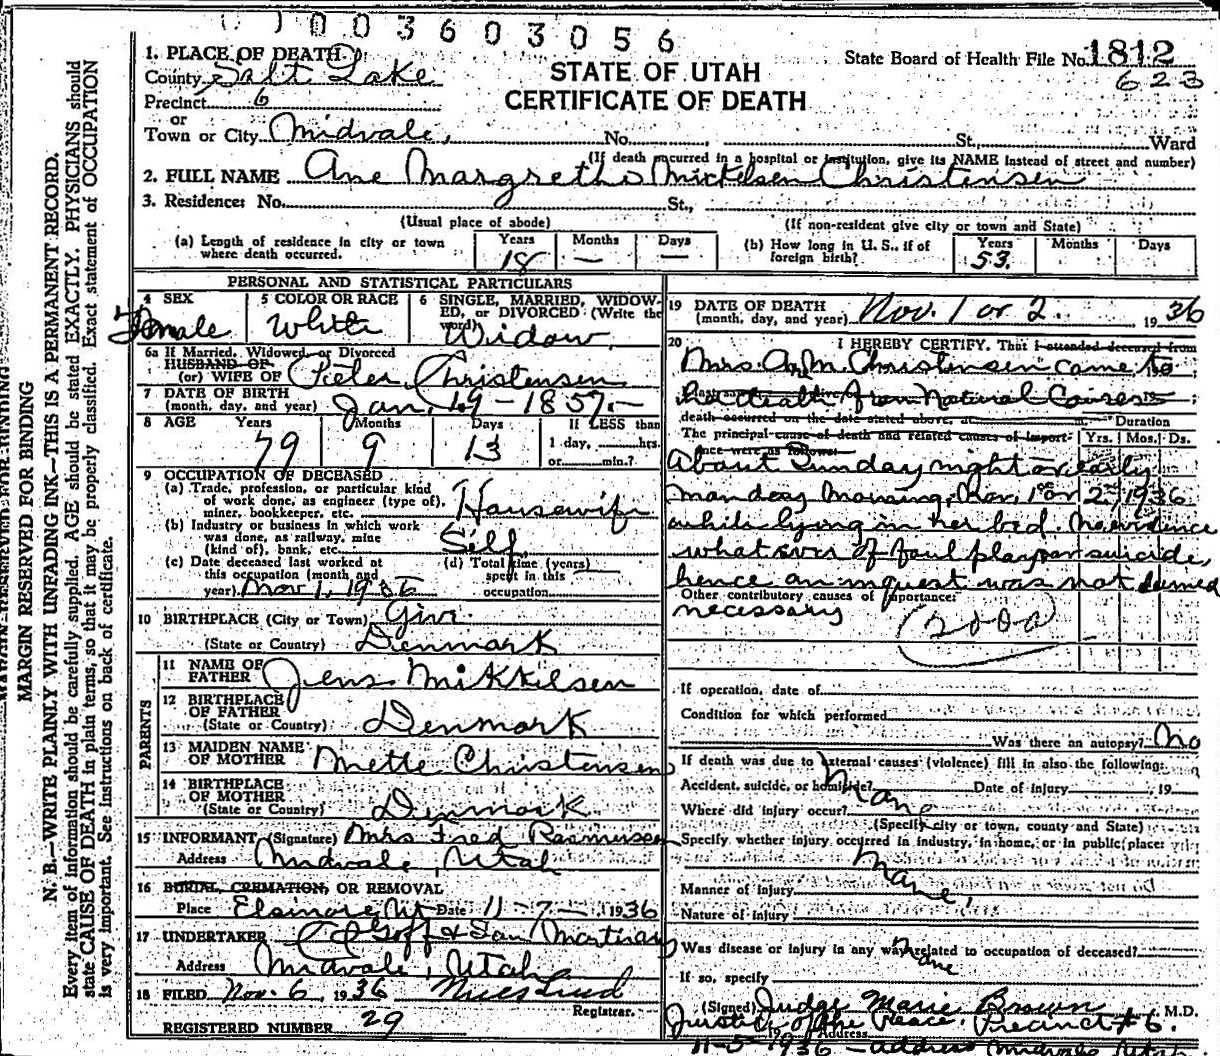 1003603056
1. PLACE OF DEATH
State Board of Health File No. 1812
County Salt Lake
STATE OF UTAH
623
Precinct 6
CERTIFICATE OF DEATH
or
Town or City Midvale, No. St., Ward
(If death occurred in a hospital or institution, give its NAME instead of street and number)
2. FULL NAME Ane Margreth Mickelsen Christensen
3. Residence: No. St.,
(Usual place of abode) (If non-resident give city or town and State)
(a) Length of residence in city or town where death occurred. Years 18 Months — Days —
(b) How long in U. S., if of foreign birth? Years 53 Months Days
PERSONAL AND STATISTICAL PARTICULARS
4 SEX Female
5 COLOR OR RACE White
6 SINGLE, MARRIED, WIDOWED, or DIVORCED (Write the word) Widow
6a If Married, Widowed, or Divorced
HUSBAND OF
(or) WIFE OF Peter Christensen
7 DATE OF BIRTH
(month, day, and year) Jan. 19 - 1857.-
8 AGE Years 79 Months 9 Days 13 If LESS than 1 day, hrs. or min.?
9 OCCUPATION OF DECEASED
(a) Trade, profession, or particular kind of work done, as engineer (type of), miner, bookkeeper, etc. Housewife
(b) Industry or business in which work was done, as railway, mine (kind of), bank, etc. Self
(c) Date deceased last worked at this occupation (month and year) Nov 1, 1936
(d) Total time (years) spent in this occupation
10 BIRTHPLACE (City or Town) Give
(State or Country) Denmark
PARENTS
11 NAME OF FATHER Jens Mikkelsen
12 BIRTHPLACE OF FATHER
(State or Country) Denmark
13 MAIDEN NAME OF MOTHER Mette Christensen
14 BIRTHPLACE OF MOTHER
(State or Country) Denmark
15 INFORMANT (Signature) Mrs Fred Rasmussen
Address Midvale, Utah
16 BURIAL, CREMATION, OR REMOVAL
Place Elsinore, Ut Date 11-7- 1936
17 UNDERTAKER Goff & Son Mortuary
Address Midvale, Utah
18 FILED Nov. 6, 1936
Registrar.
REGISTERED NUMBER 29
19 DATE OF DEATH
(month, day, and year) Nov. 1 or 2. 1936
20 I HEREBY CERTIFY, That I attended deceased from
Mrs. A. M. Christensen came to
her death from Natural Causes
death occurred on the date stated above, at m. Duration
The principal cause of death and related causes of importance were as follows: Yrs. Mos. Ds.
About Sunday night or early
Monday Morning, Nov. 1st or 2nd 1936
while lying in her bed. No evidence
what ever of foul play or suicide,
hence an inquest was not deemed
Other contributory causes of importance:
necessary
200a
If operation, date of
Condition for which performed
Was there an autopsy? No
If death was due to external causes (violence) fill in also the following:
Accident, suicide, or homicide? None Date of injury , 19
Where did injury occur?
(Specify city or town, county and State)
Specify whether injury occurred in industry, in home, or in public place:
None,
Manner of injury
Nature of injury
Was disease or injury in any way related to occupation of deceased? None
If so, specify
(Signed) Judge Marie Brown M.D.
Justice of the Peace, Precinct #6.
Address
11-5-1936 - address Midvale Utah
MARGIN RESERVED FOR BINDING
MARGIN RESERVED FOR BINDING
N. B.—WRITE PLAINLY WITH UNFADING INK—THIS IS A PERMANENT RECORD.
Every item of information should be carefully supplied. AGE should be stated EXACTLY. PHYSICIANS should
state CAUSE OF DEATH in plain terms, so that it may be properly classified. Exact statement of OCCUPATION
is very important. See instructions on back of certificate.